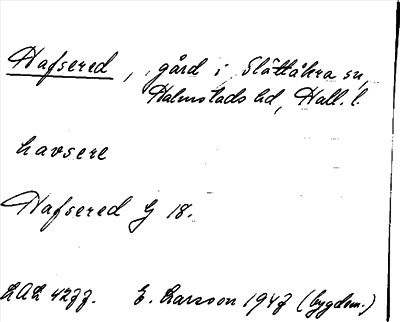 Hafsered, gård i Slättåkra sn,
Halmstads hd, Hall. l.
havsere
Hafsered G 18.
LAL 4277. E. Larsson 1947 (bygdem.)